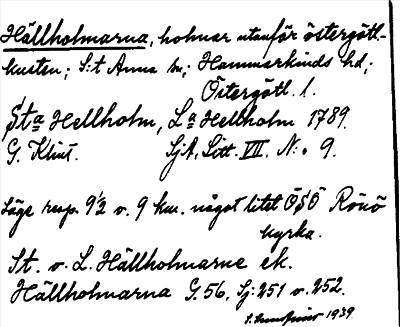 Hällholmarna, holmar utanför östergötl-
kusten; S:t Anna sn; Hammarkinds hd;
Östergötl. l.
Sta Hellholm, La Hellholm 1789.
G. Klint. Sjk. Litt. VII, N:o 9.
Läge resp. 9½ o. 9 km. något litet ÖSÖ Rönö
kyrka.
St. o. L. Hällholmarne ek.
Hällholmarna G. 56, Sj: 251 o. 252.
1939